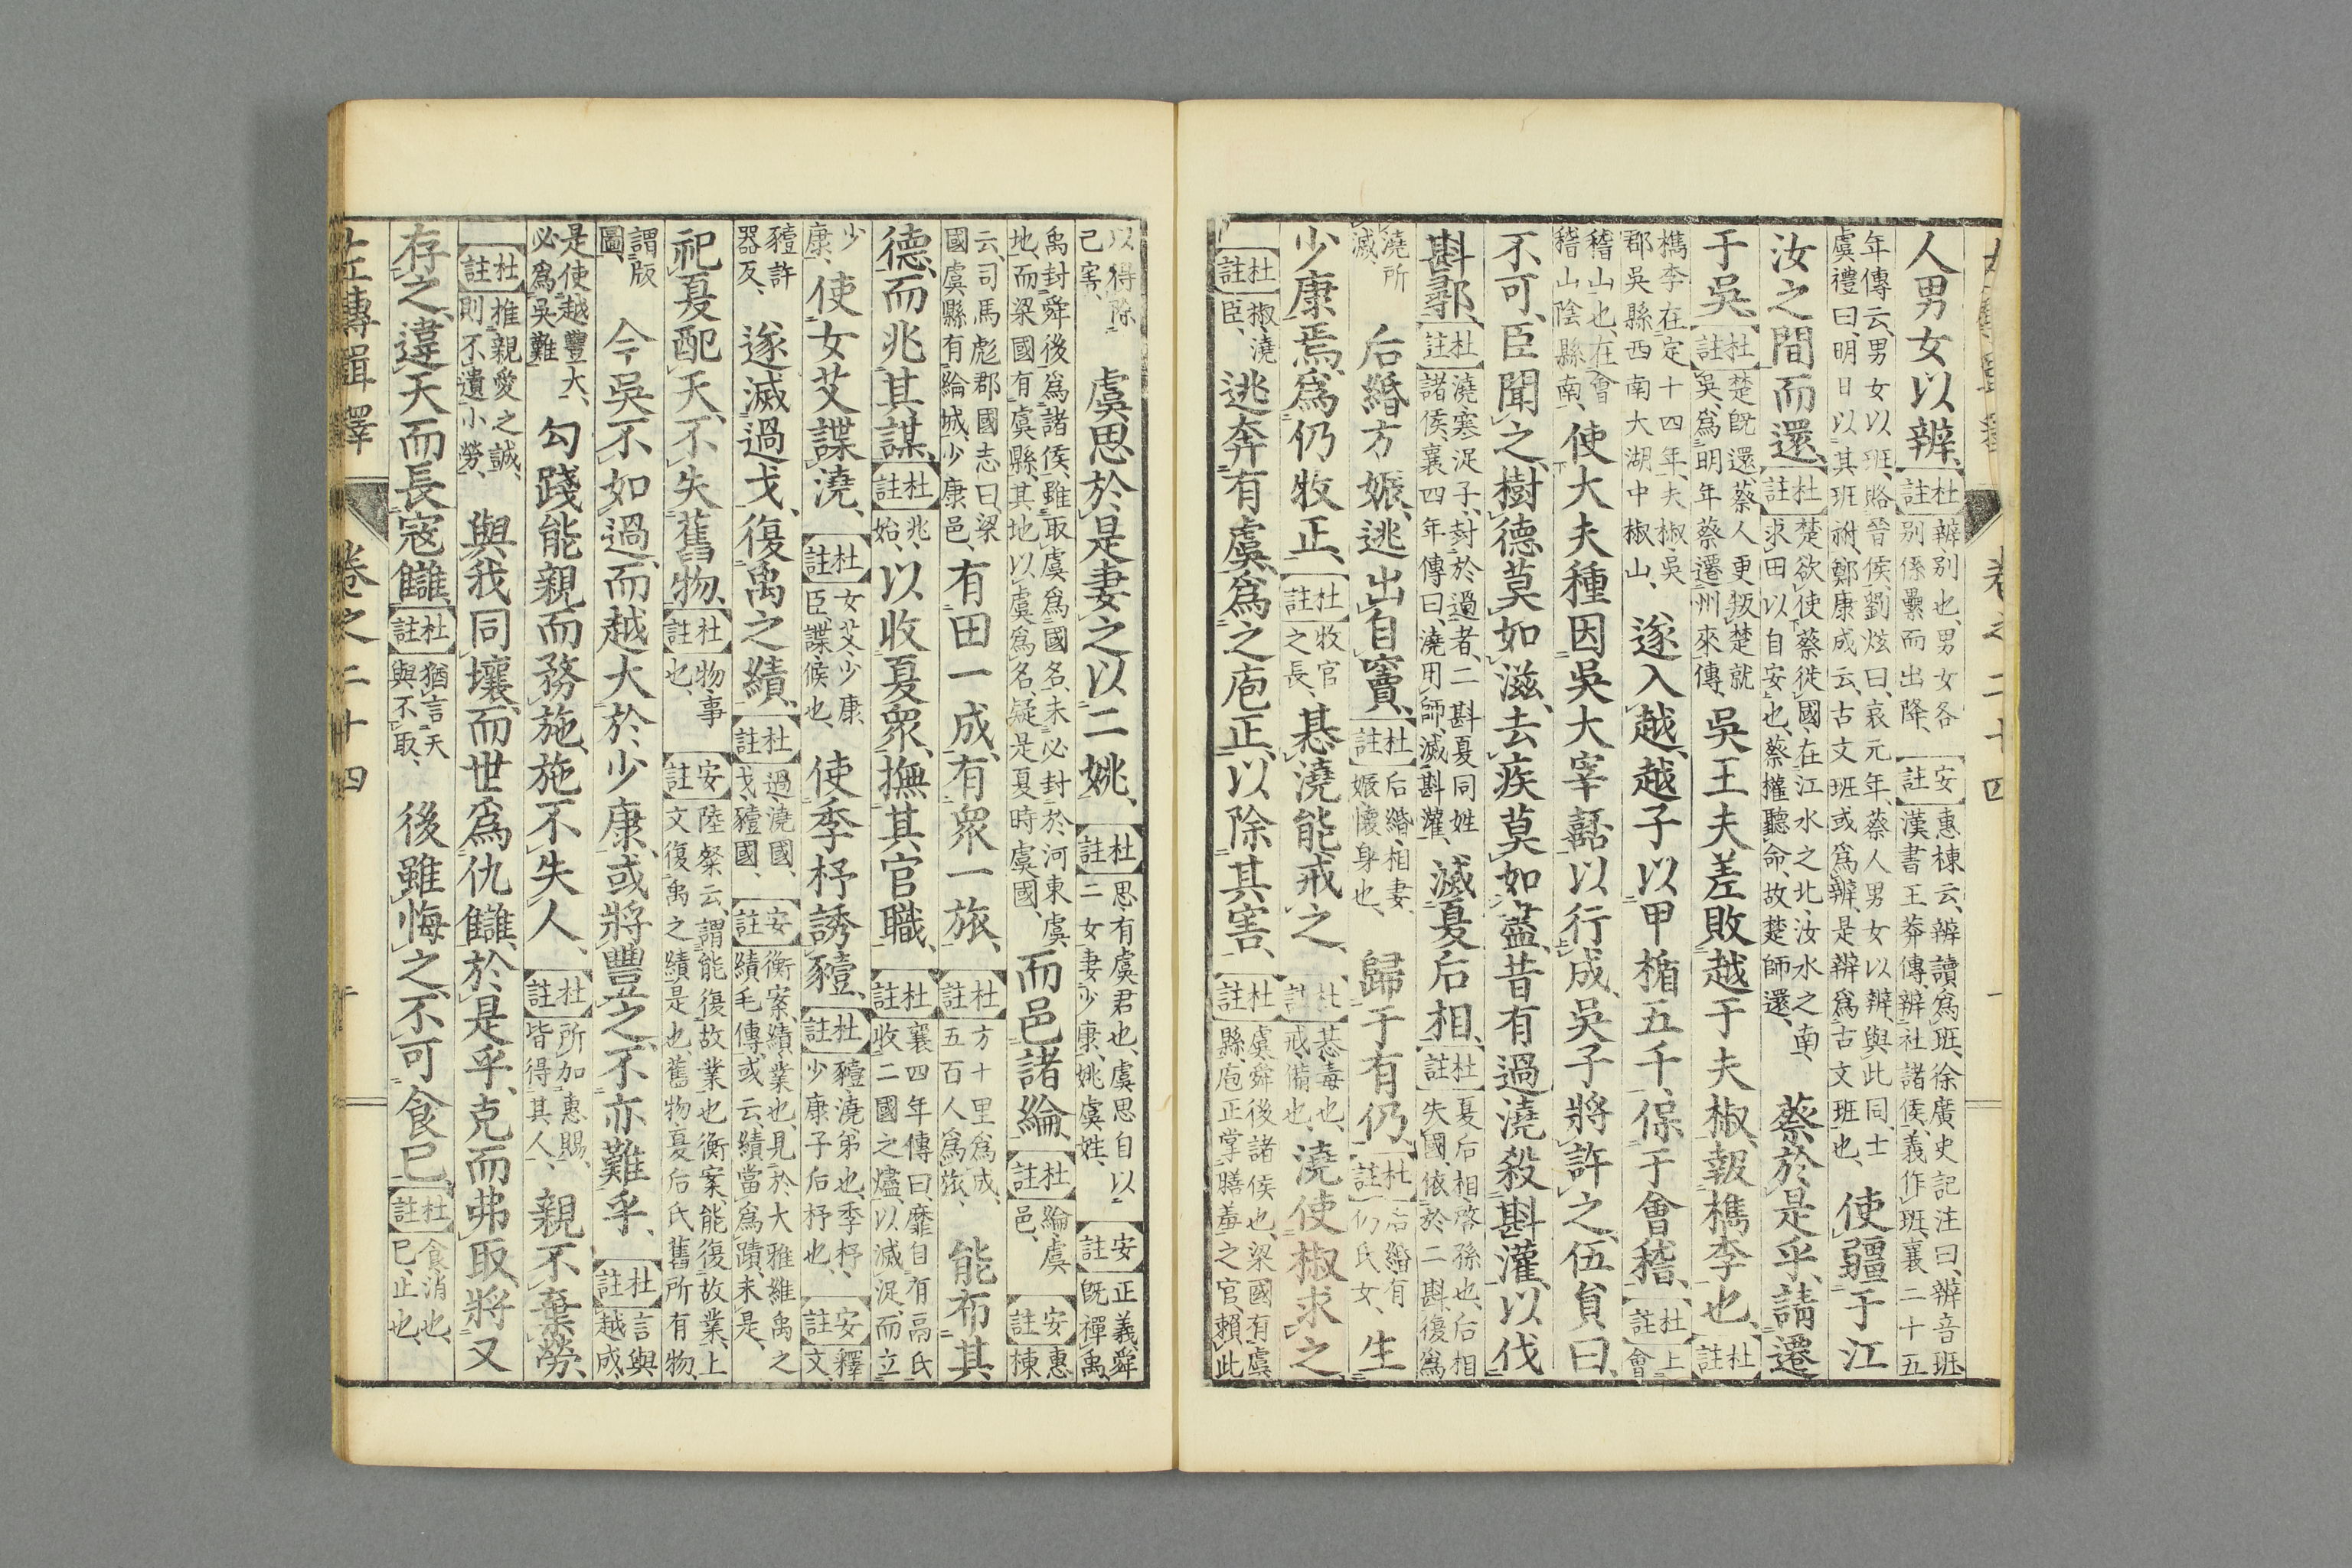 人男女以辨、杜註辨、別也、男女各別係纍而出降、安註惠棟云、辨讀爲班、徐廣史記注曰、辨音班、漢書王莽傳、辨社諸侯、義作班、襄二十五
年傳云、男女以班、賂晉侯、劉炫曰、哀元年、蔡人男女以辨、與此同、士虞禮曰、明日以其班祔、鄭康成云、古文班或爲辨、是辨爲古文班也、使疆于江
汝之間而還、杜註楚欲使蔡徙國、在江水之北、汝水之南、求田以自安也、蔡權聽命、故楚師還、蔡於是乎請遷
于吳、杜註楚既還、蔡人更叛楚就吳、爲明年蔡遷州來傳、吳王夫差敗越于夫椒、報檇李也、杜註
檇李在定十四年、夫椒、吳郡吳縣西南大湖中椒山、遂入越、越子以甲楯五千、保于會稽、杜註上會
稽山也、在會稽山陰縣南、使大夫種因吳大宰嚭以行成、吳子將許之、伍員曰、
不可、臣聞之、樹德莫如滋、去疾莫如盡、昔有過澆殺斟灌、以伐
斟鄩、杜註澆、寒浞子、封於過者、二斟、夏同姓諸侯、襄四年傳曰、澆用師滅斟灌、滅夏后相、杜註夏后相、啓孫也、后相失國、依於二斟、復爲
澆所滅、后緡方娠、逃出自竇、杜註后緡、相妻、娠、懷身也、歸于有仍、杜註后緡、有仍氏女、生
少康焉、爲仍牧正、杜註牧官之長、惎澆能戒之、杜註惎、毒也、戒、備也、澆使椒求之
杜註椒、澆臣、逃奔有虞、爲之庖正、以除其害、杜註虞、舜後諸侯也、梁國有虞縣、庖正、掌膳羞之官、賴此
以得除己害、虞思於是妻之以二姚、杜註思、有虞君也、虞思自以二女妻少康、姚、虞姓、安註正義、舜既禪禹、
禹封舜後爲諸侯、雖取虞爲國名、未必封於河東虞地、而梁國有虞縣、其地以虞爲名、疑是夏時虞國、而邑諸綸、杜註綸、虞邑、安註惠棟
云、司馬彪郡國志曰、梁國虞縣有綸城、少康邑、有田一成、有衆一旅、杜註方十里爲成、五百人爲旅、能布其
德、而兆其謀、杜註兆、始、以收夏衆、撫其官職、杜註襄四年傳曰、靡自有鬲氏收二國之燼、以滅浞、而立
少康、使女艾諜澆、杜註女艾、少康臣、諜、候也、使季杼誘豷、杜註豷、澆弟也、季杼、少康子后杼也、安註釋文、
豷許器反、遂滅過戈、復禹之績、杜註過、澆國、戈、豷國、安註衡案、績、業也、見於大雅維禹之績毛傳、或云、績當爲蹟、未是、
祀夏配天、不失舊物、杜註物、事也、安註陸粲云、謂能復故業也、衡案、能復故業、上文復禹之績是也、舊物、夏后氏舊所有物、
謂版圖、今吳不如過、而越大於少康、或將豐之、不亦難乎、杜註言與越成、
是使越豐大、必爲吳難、勾踐能親而務施、施不失人、杜註所加惠賜、皆得其人、親不棄勞、
杜註推親愛之誠、則不遺小勞、與我同壤、而世爲仇讎、於是乎克而弗取、將又
存之、違天而長寇讎、杜註猶言天與不取、後雖悔之、不可食已、杜註食、消也、已、止也、
左傳輯釋 卷之二十四